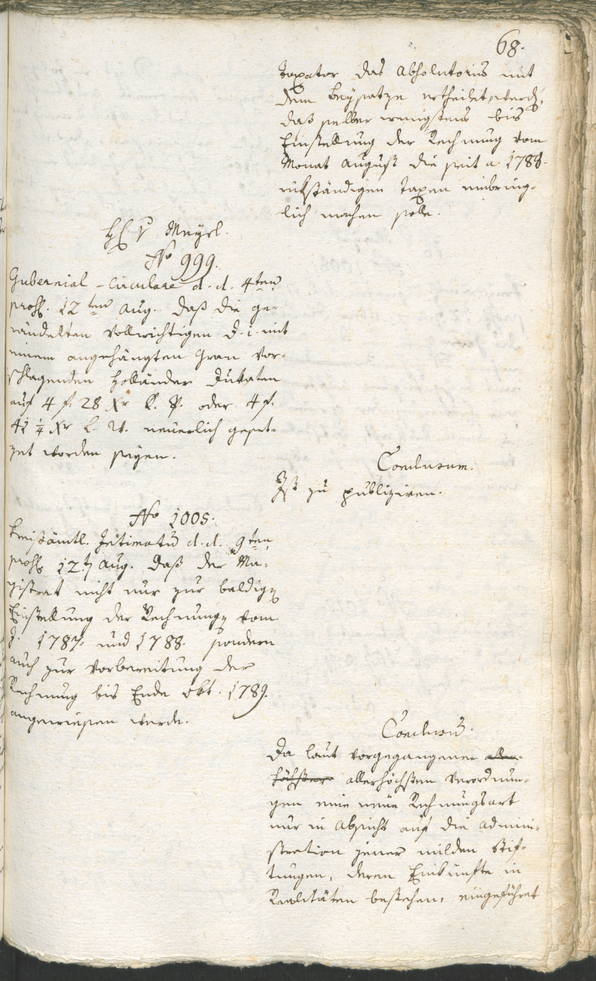 68.
Taxator das Absolutorium mit
dem Beysatze ertheilet werde,
daß selber wenigstens bis
Einstellung der Rechnung vom
Monat August die seit a 1788
rükständigen Taxen einbring-
lich machen solle.
H. v Mayrl.
No 999.
Gubernial-Circulare d. d. 4ten
prohs. 12ten Aug. daß die ge-
rändelten vollwichtigen d. i. mit
einem angehängten Gran vor-
schlagenden Holländer Dukaten
auf 4 f. 28 Xr oder 4 f.
Xr neuerlich geset-
zet worden seyen.
Conclusum.
Ist zu publiziren.
No 1005.
Kreisämtl. Intimatum d. d. 9ten
prohs. 12t Aug. daß der Ma-
gistrat nicht nur zur baldigen
Einstellung der Rechnungen vom
J. 1787. und 1788. sondern
auch zur Vorbereitung der
Rechnung bis Ende Okt. 1789.
angewiesen werde.
Conclusum.
Da laut vorgegangener aller-
höchster allerhöchsten Verordnun-
gen eine neue Rechnungsart
nur in Absicht auf die Admini-
stration jener milden Stif-
tungen, deren Einkünfte in
Realitäten bestehen, eingeführet